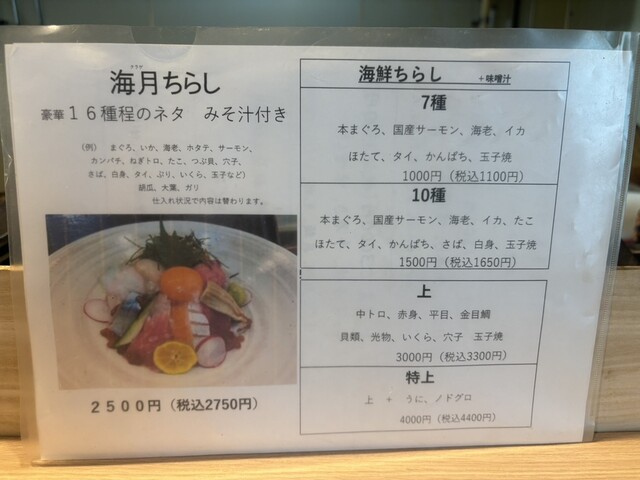 海月ちらし
豪華１６種程のネタ　みそ汁付き
（例）　まぐろ、いか、海老、ホタテ、サーモン、
カンパチ、ねぎトロ、たこ、つぶ貝、穴子、
さば、白身、タイ、ぶり、いくら、玉子など）
胡瓜、大葉、ガリ
仕入れ状況で内容は替わります。
２５００円（税込2750円）
海鮮ちらし　+味噌汁
7種
本まぐろ、国産サーモン、海老、イカ
ほたて、タイ、かんぱち、玉子焼
1000円（税込1100円）
10種
本まぐろ、国産サーモン、海老、イカ、たこ
ほたて、タイ、かんぱち、さば、白身、玉子焼
1500円（税込1650円）
上
中トロ、赤身、平目、金目鯛
貝類、光物、いくら、穴子　玉子焼
3000円（税込3300円）
特上
上　+　うに、ノドグロ
4000円（税込4400円）